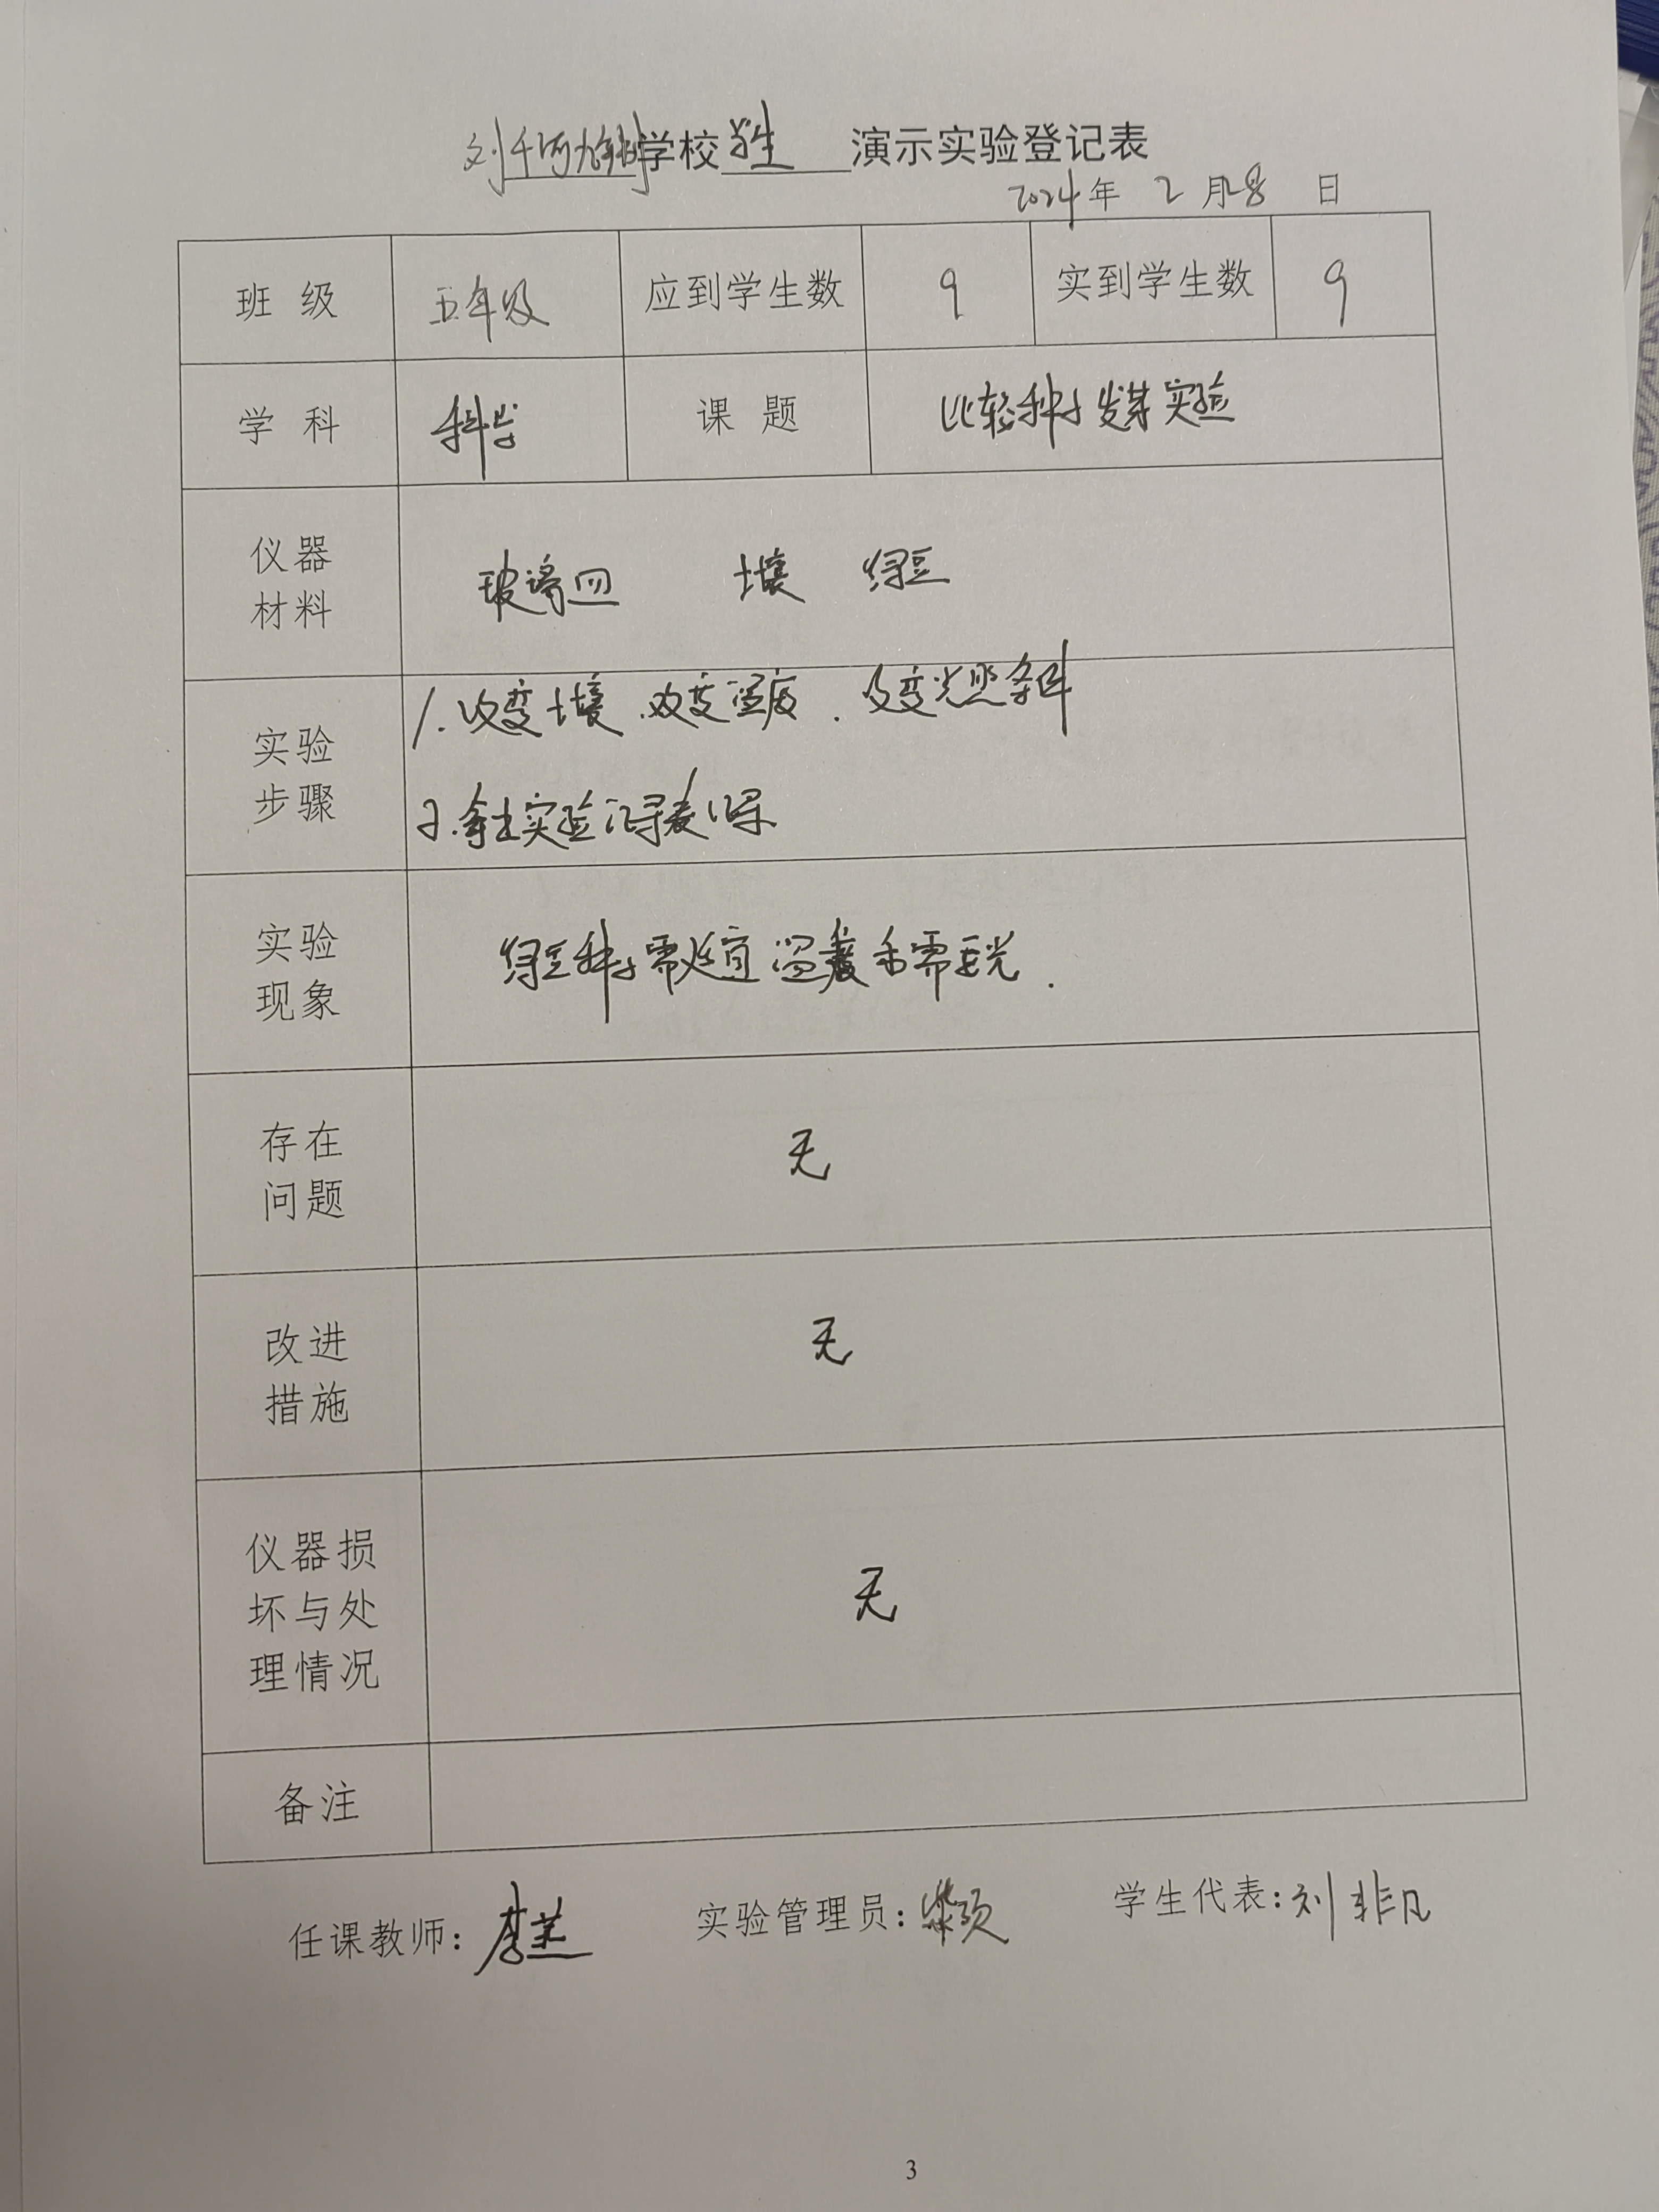 刘千河九年制学校 学生 演示实验登记表
2024年 2月28日
班级 五年级 应到学生数 9 实到学生数 9
学科 科学 课题 比较种子发芽实验
仪器
材料
玻璃皿 土壤 绿豆
实验
步骤
1.改变土壤.改变温度.改变光照条件
2.拿出实验记录表记录
实验
现象
绿豆种子需适宜温度和需要光.
存在
问题
无
改进
措施
无
仪器损
坏与处
理情况
无
备注
任课教师: 李 实验管理员: 学生代表:刘非凡
3